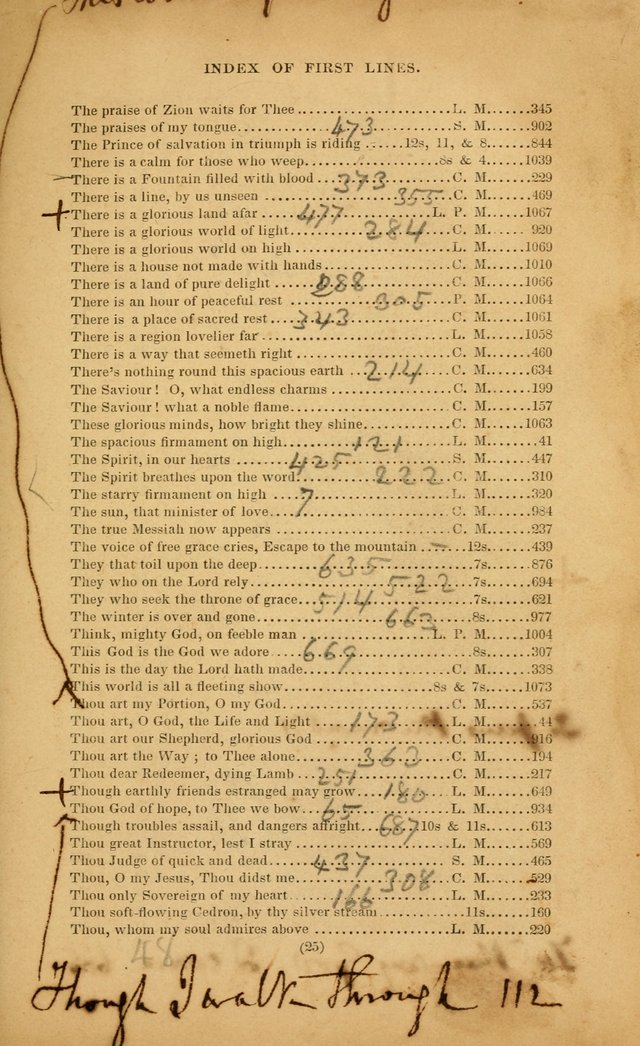 INDEX OF FIRST LINES.
The praise of Zion waits for Thee ........ L. M. ...... 345
The praises of my tongue ........ 473 S. M. ...... 902
The Prince of salvation in triumph is riding ...... 12s, 11, & 8 ...... 844
There is a calm for those who weep ........ 8s & 4 ...... 1039
There is a Fountain filled with blood ... 373 C. M. ...... 229
There is a line, by us unseen ........ 355 C. M. ...... 469
+ There is a glorious land afar ..... 477 L. P. M. ...... 1067
There is a glorious world of light ........ 284 C. M. ...... 920
There is a glorious world on high ........ L. M. ...... 1069
There is a house not made with hands ........ C. M. ...... 1010
There is a land of pure delight ..... 288 C. M. ...... 1066
There is an hour of peaceful rest ........ 305 P. M. ...... 1064
There is a place of sacred rest ... 343 C. M. ...... 1061
There is a region lovelier far ........ L. M. ...... 1058
There is a way that seemeth right ........ C. M. ...... 460
There's nothing round this spacious earth ... 214 C. M. ...... 634
The Saviour! O, what endless charms ........ C. M. ...... 199
The Saviour! what a noble flame ........ C. M. ...... 157
These glorious minds, how bright they shine ........ C. M. ...... 1063
The spacious firmament on high ........ 121 L. M. ...... 41
The Spirit, in our hearts ........ 425 S. M. ...... 447
The Spirit breathes upon the word ........ 222 C. M. ...... 310
The starry firmament on high .... 7 L. M. ...... 320
The sun, that minister of love ........ C. M. ...... 984
The true Messiah now appears ........ C. M. ...... 237
The voice of free grace cries, Escape to the mountain ...... 12s ...... 439
They that toil upon the deep ........ 635 7s ...... 876
They who on the Lord rely ........ 522 7s ...... 694
They who seek the throne of grace ... 514 7s ...... 621
The winter is over and gone ........ 663 8s ...... 977
Think, mighty God, on feeble man ........ L. P. M. ...... 1004
This God is the God we adore ..... 669 8s ...... 307
This is the day the Lord hath made ........ C. M. ...... 338
This world is all a fleeting show ........ 8s & 7s ...... 1073
Thou art my Portion, O my God ........ C. M. ...... 537
Thou art, O God, the Life and Light ..... 173 L. M. ...... 44
Thou art our Shepherd, glorious God ........ C. M. ...... 916
Thou art the Way; to Thee alone ........ 362 C. M. ...... 194
Thou dear Redeemer, dying Lamb ... 251 C. M. ...... 217
+ Though earthly friends estranged may grow ..... 180 L. M. ...... 649
Thou God of hope, to Thee we bow ... 65 L. M. ...... 934
Though troubles assail, and dangers affright ... 687 10s & 11s ...... 613
Thou great Instructor, lest I stray ........ L. M. ...... 569
Thou Judge of quick and dead ..... 437 S. M. ...... 465
Thou, O my Jesus, Thou didst me ........ 308 C. M. ...... 529
Thou only Sovereign of my heart ..... 166 L. M. ...... 233
Thou soft-flowing Cedron, by thy silver stream ........ 11s ...... 160
Thou, whom my soul admires above ........ L. M. ...... 220
(25)
48
Though I walk through 112